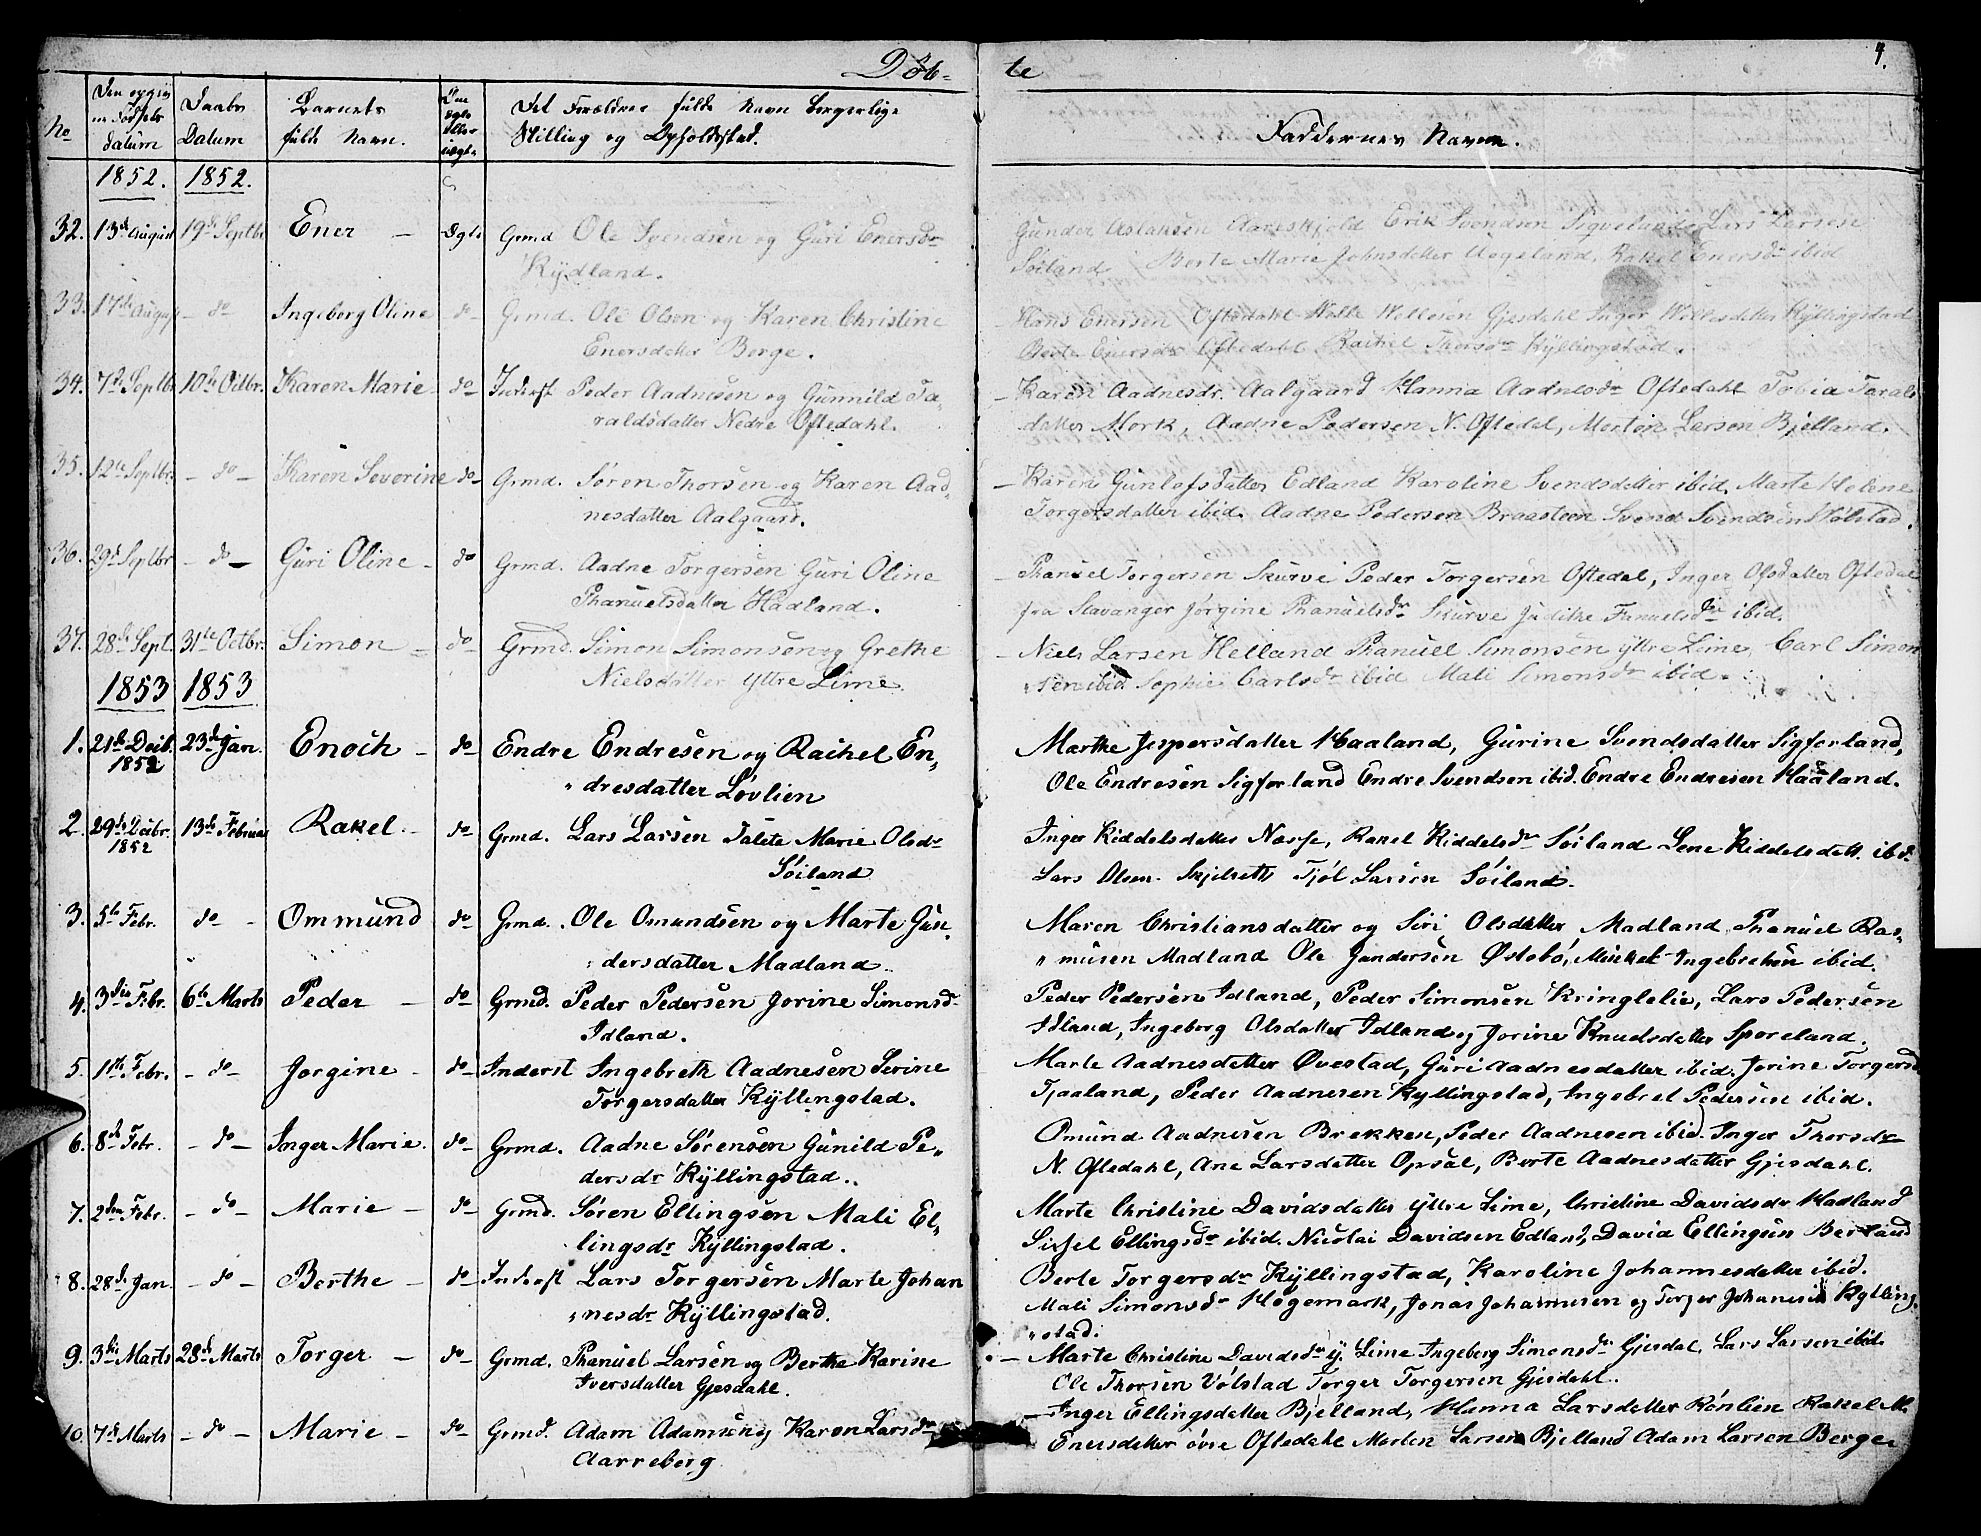 Døb- te
4.
No
Den
Fødsels
Datum
Daabs
Datum
Barnets
fulde Navn.
Om
ægte
eller
uægte
Det Forældres fulde Navn borgerlige
Stilling og Opholdsstad.
Faddernes Navne.
1852. 1852.
32. 13de August 19de Septbr Ener - Ægte Grmd Ole Svendsen og Guri Enersdr
Kydland.
Gunder Aslaksen Aareskjold Erik Svendsen Sigveland Lars Larsen
Søiland Berte Marie Johnsdatter Aageland, Rakel Enersdr ibid
33. 17de August - do - Ingeborg Oline do - Grmd. Ole Olsen og Karen Christine
Enersdatter Berge.
Hans Enersen Oftedahl Helle Wellesen Gjesdahl Inger Willesdatter Kyllingstad
Berte Enersdr Oftedahl Rachel Thorsdr Kyllingstad.
34. 7de Septbr 10de Octbr. Karen Marie do - Inderst Peder Aadnesen og Gunnild Ta-
raldsdatter Nedre Oftedahl.
- Karen Aadnesdr. Aalgaard Hanna Aadnesdr Oftedahl Tobia Tarals
datter Mork, Aadne Pedersen N. Oftedal, Morten Larsen Bjelland.
35. 12te Septbr - do - Karen Severine do - Grmd. Søren Thorsen og Karen Aad-
nesdatter Aalgaard.
- Karen Gunlofsdatter Edland Karoline Svendsdatter ibid. Marte Helene
Torgersdatter ibid. Aadne Pedersen Braasteen Svend Svendsen Hølstad.
36. 29de Septbr - do - Guri Oline - do Grmd. Aadne Torgersen Guri Oline
Phanuelsdatter Hadland.
- Phanuel Torgersen Skurve Peder Torgersen Oftedal, Inger Olsdatter Oftedal
fra Stavanger Jørgine Phanuelsdr Skurve Judithe Fanuelsdr ibid.
37. 28de Sept. 31te Octbr. Simon - do - Grmd. Simon Simonsen og Grethe
Nielsdatter Yttre Lime.
- Niels Larsen Helland Phanuel Simonsen yttre Lime, Carl Simon
sen ibid Sophie Carlsdr ibid Mali Simonsdr ibid.
1853 1853
1. 21de Decb. 23de Jan. Enoch - do - Endre Endresen og Rachel En,
1852
dresdatter Løvlien
Marthe Jespersdatter Haaland, Gurine Svendsdatter Sigforland,
Ole Endresen Sigforland Endre Svendsen ibid. Endre Endresen Haaland.
2. 29de Decbr. 13de Februar Rakel. - do - Grmd. Lars Larsen Talete Marie Olsdr
1852
Søiland
Inger Kiddelsdatter Næsse, Rakel Kiddelsdr Søiland Lene Kiddelsdatt. ibd.
Lars Olsen Skjelsetts Tjøl Larsen Søiland.
3. 5te Febr. do - Ommund do - Grmd. Ole Omundsen og Marte Gun,
dersdatter Madland.
Maren Christiansdatter og Siri Olsdatter Madland Phanuel Ras,
musen Madland Ole Gundersen Østebø, Mikkel Ingebretsen ibid.
4. 3die Febr. 6te Marts Peder - do - Grmd. Peder Pedersen Jorine Simonsd-
Idland.
Peder Pedersen Idland, Peder Simonsen Kringlelie, Lars Pedersen
Idland, Ingeborg Olsdatter Idland og Jorine Knudsdatter Sporeland.
5. 1ste Febr. - do - Jorgine - do - Inderst Ingebreth Aadnesen Serine
Torgersdatter Kyllingstad.
Marte Aadnesdatter Øvestad, Guri Aadnesdatter ibid. Jorine Torgersd
Tjaaland, Peder Aadnesen Kyllingstad, Ingebret Pedersen ibid.
6. 8de Febr. - do - Inger Marie. do - Grmd. Aadne Sørensen Gunild Pe,
dersdr Kyllingstad.
Omund Aadnesen Brekken, Peder Aadnesen ibid. Inger Thorsdr
N. Oftedahl, Ane Larsdatter Opsal, Berte Aadnesdatter Gjesdahl.
7. 2den Febr. - do - Marie - do - Grmd. Søren Ellingsen Mali El,
lingsdr Kyllingstad.
Marte Christine Davidsdatter yttre Lime, Christine Davidsdr Hadland
Sissel Ellingsdr ibid. Nicolai Davidsen Edland, David Ellingsen Berland
8. 28de Jan. - do - Berthe - do - Inderst Lars Torgersen Marte Johan
nesdr Kyllingstad.
Berte Torgersdr Kyllingstad, Karoline Johannesdatter ibid.
Mali Simonsdr Høgemark, Jonas Johannesen og Torger Johanesen Kylling,
stad.
9. 3die Marts 28de Marts Torger - do - Grmd. Phanuel Larsen og Berthe Karine
Iversdatter Gjesdahl.
- Marte Christine Davidsdr y. Lime Ingeborg Simonsdr Gjesdal, Lars Larsen ibid.
Ole Thorsen Vølstad Torger Torgersen Gjesdahl.
10. 7de Marts - do - Marie - do - Grmd. Adam Adamsen og Karen Larsdr
Aarreberg
- Inger Ellingsdatter Bjelland, Hanna Larsdatter Rønlien Rakel M.
Enersdatter øvre Oftedahl Morten Larsen Bjelland Adam Larsen Berge.